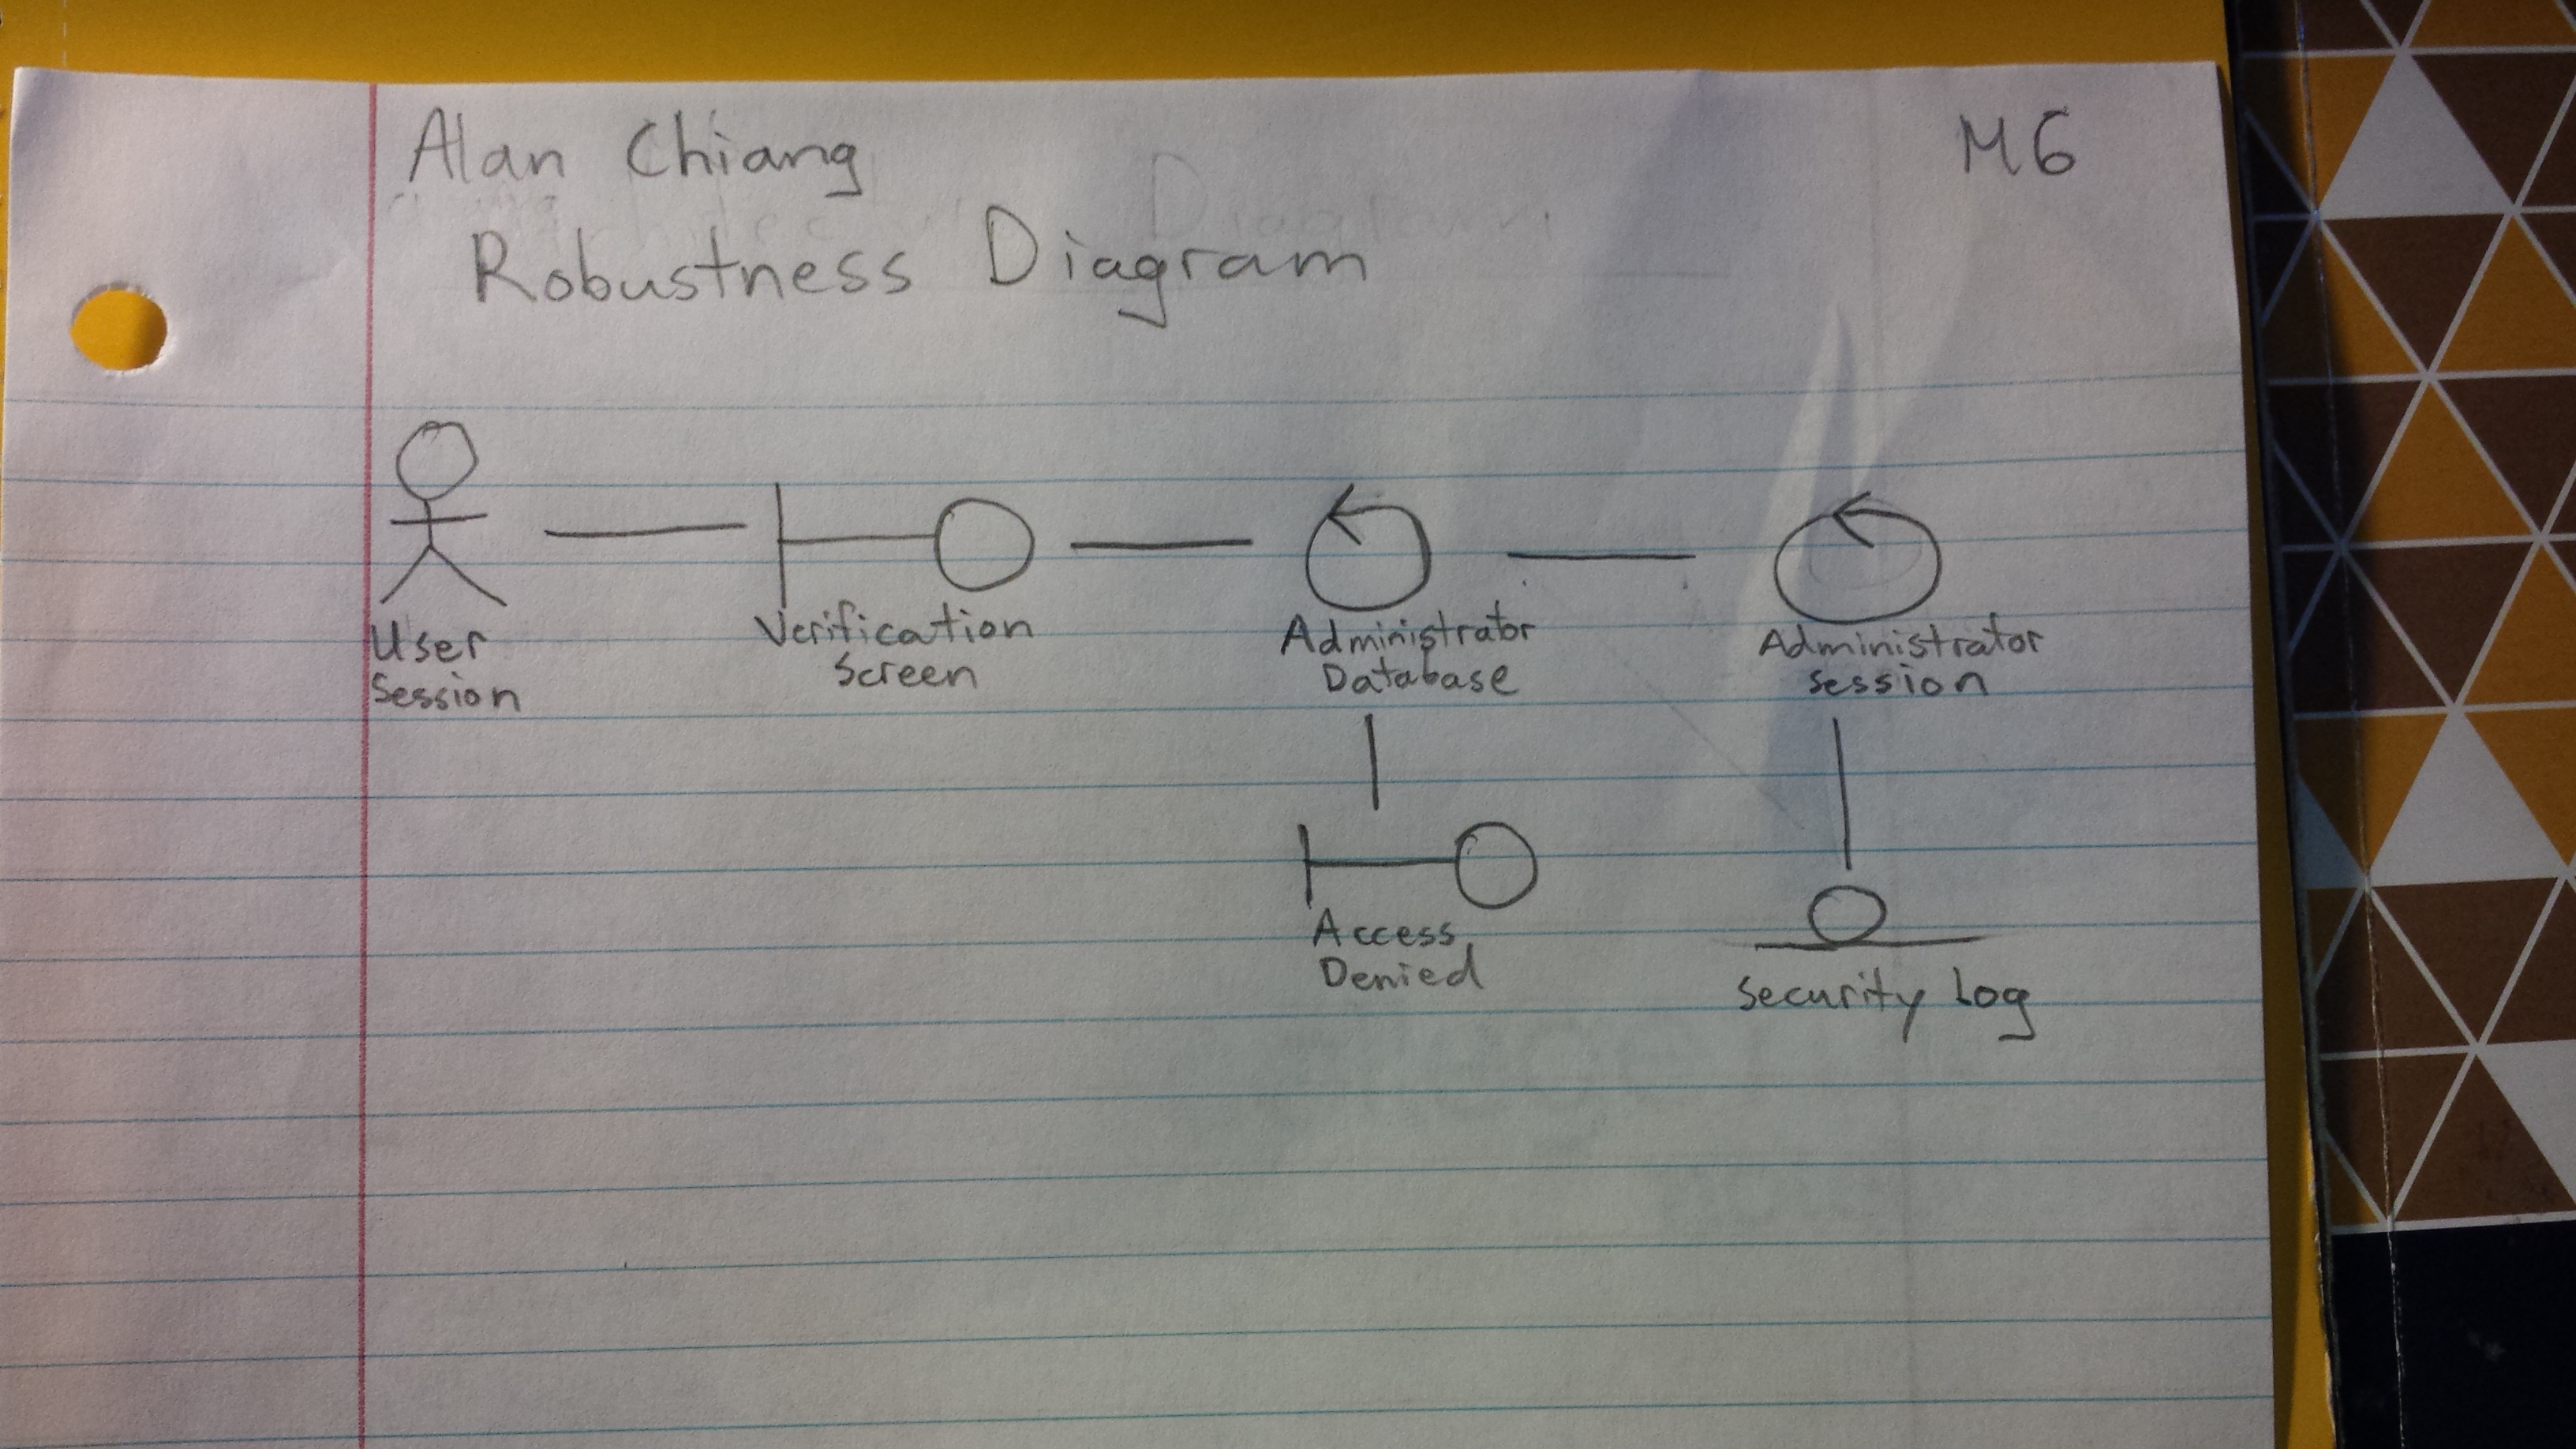 Alan Chiang
M6
Robustness Diagram
User
Session
Verification
Screen
Administrator
Database
Administrator
Session
Access
Denied
Security Log